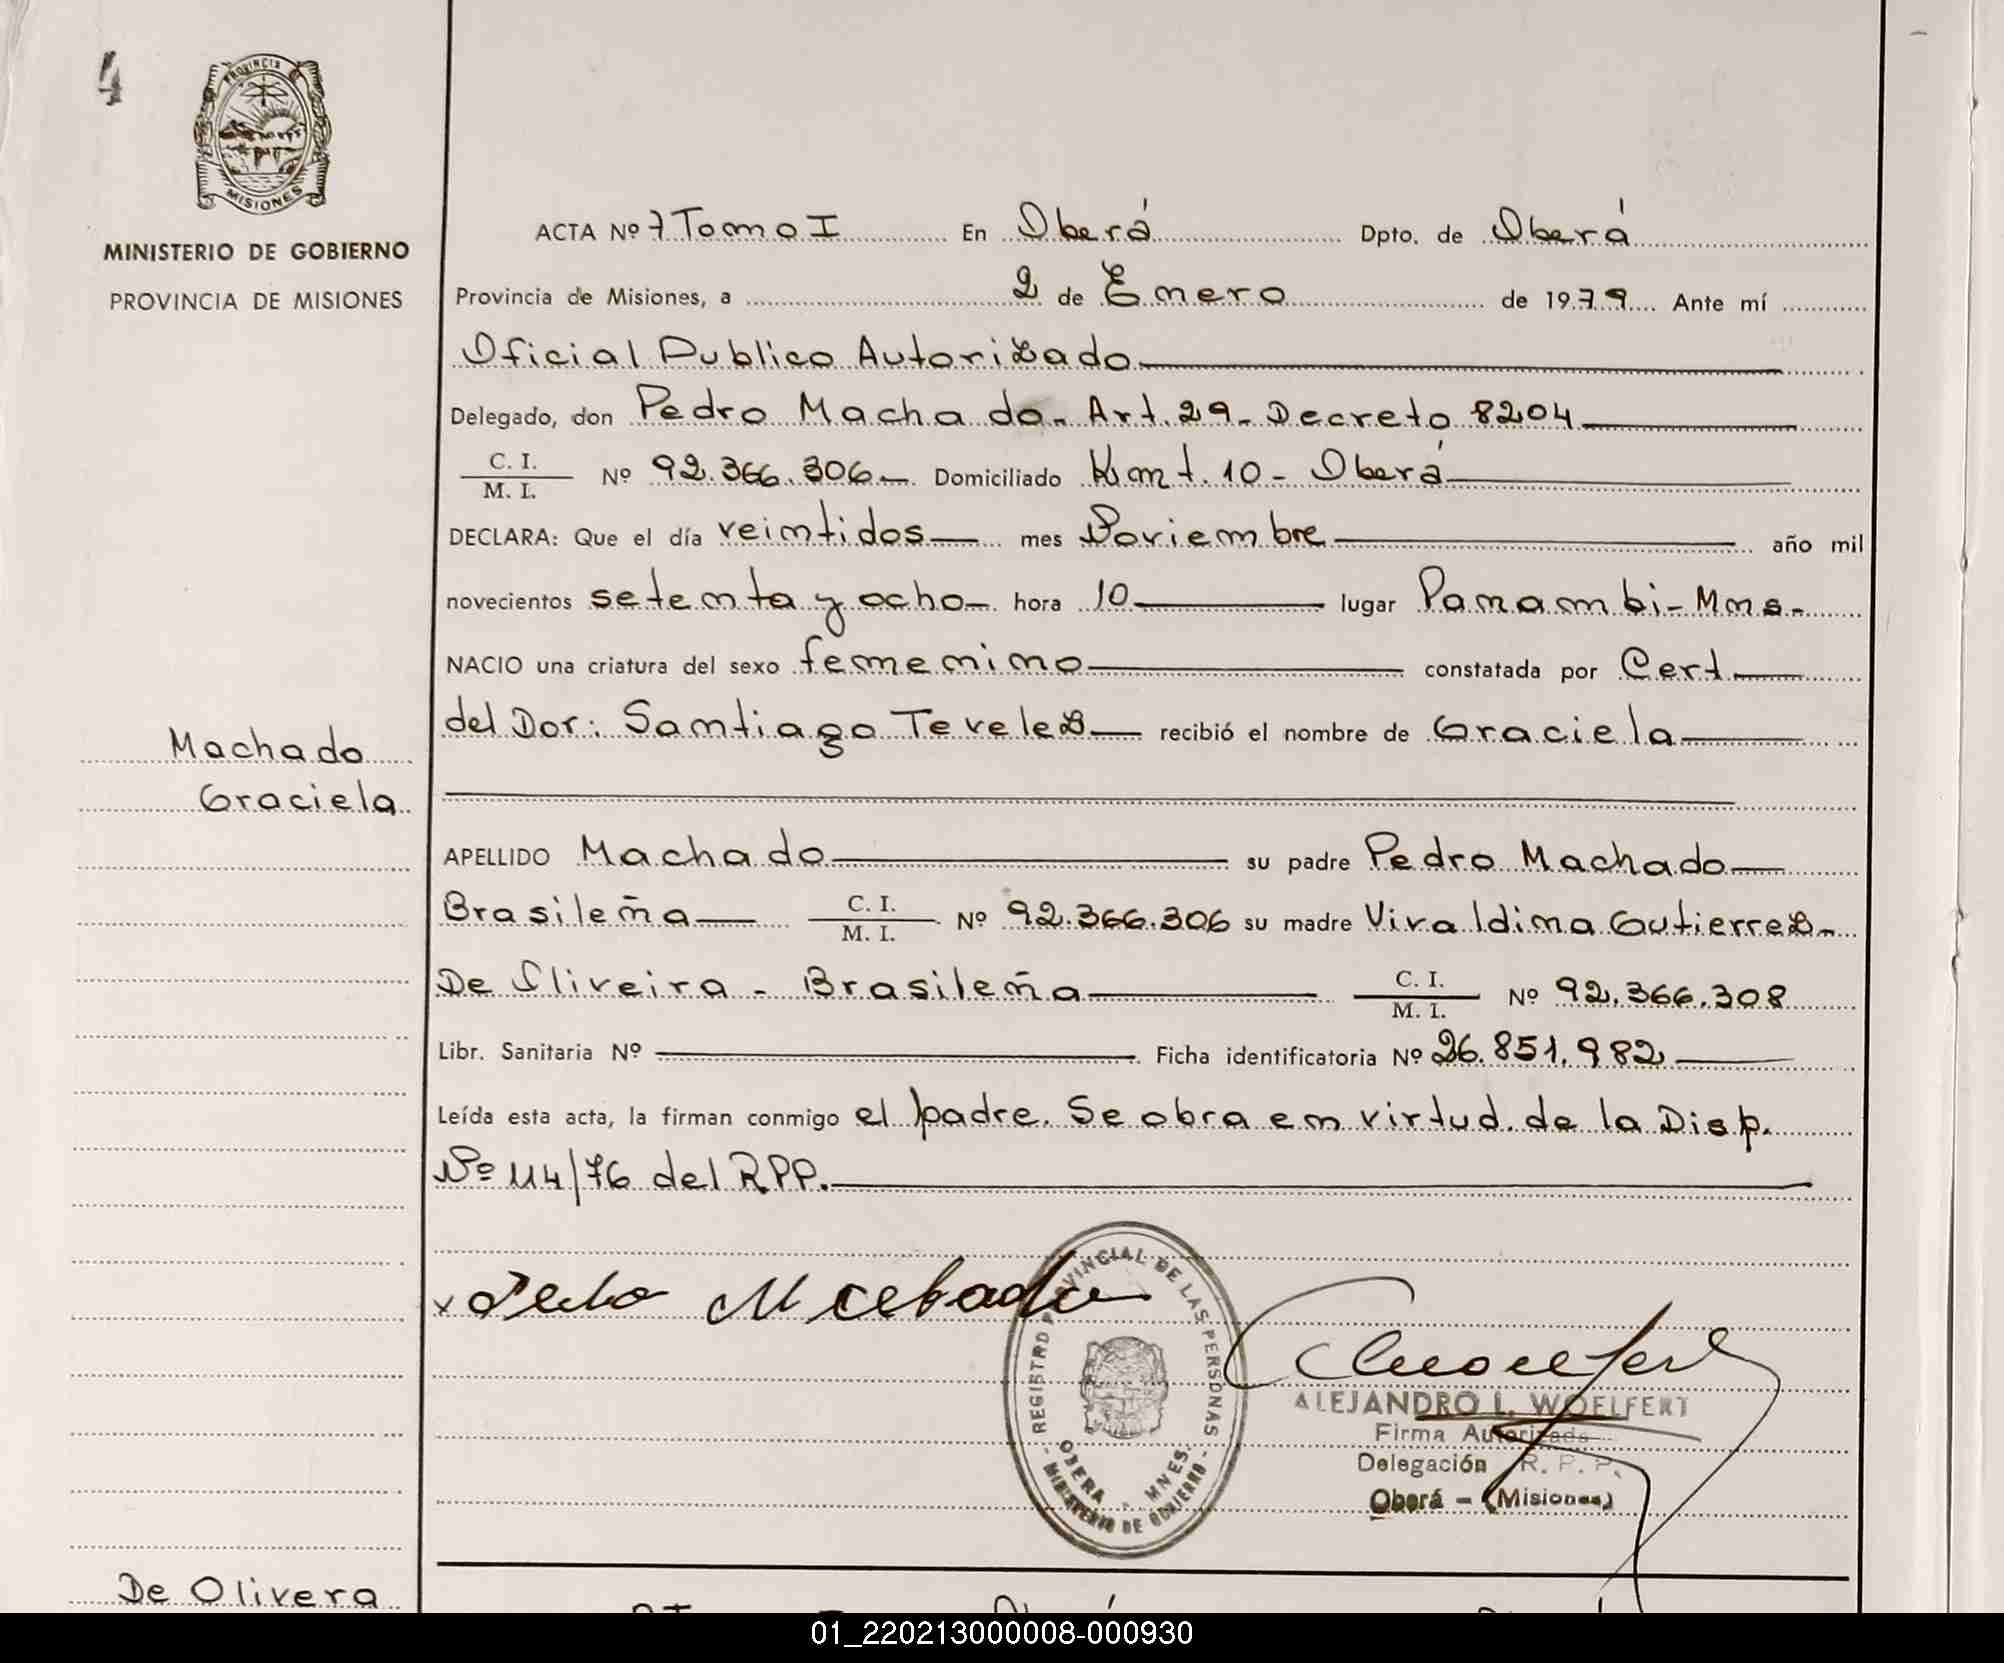 4
PROVINCIA
MISIONES
MINISTERIO DE GOBIERNO
PROVINCIA DE MISIONES
ACTA Nº 7 Tomo I En Oberá Dpto. de Oberá
Provincia de Misiones, a 2 de Enero de 1979 Ante mí
Oficial Publico Autorizado
Delegado, don Pedro Machado. Art. 29 - Decreto 8204
C. I.
M. I.
Nº 92.366.306 Domiciliado Kmt. 10 - Oberá
DECLARA: Que el día veintidos mes Noviembre año mil
novecientos setenta y ocho hora 10 lugar Panambi - Mns.
NACIO una criatura del sexo femenino constatada por Cert
del Dor: Santiago Tevelez recibió el nombre de Graciela
Machado
Graciela
APELLIDO Machado su padre Pedro Machado
Brasileña C. I.
M. I.
Nº 92.366.306 su madre Vivaldina Gutierrez
De Oliveira - Brasileña C. I.
M. I.
Nº 92.366.308
Libr. Sanitaria Nº Ficha identificatoria Nº 26.851.982
Leída esta acta, la firman conmigo el padre. Se obra en virtud de la Disp.
Nº 114/76 del R.P.P.
x Pedro Machado
REGISTRO PROVINCIAL DE LAS PERSONAS
OBERA - MNES.
MINISTERIO DE GOBIERNO
ALEJANDRO L. WOELFERT
Firma Autorizada
Delegación R. P. P.
Oberá - (Misiones)
De Olivera
01_220213000008-000930